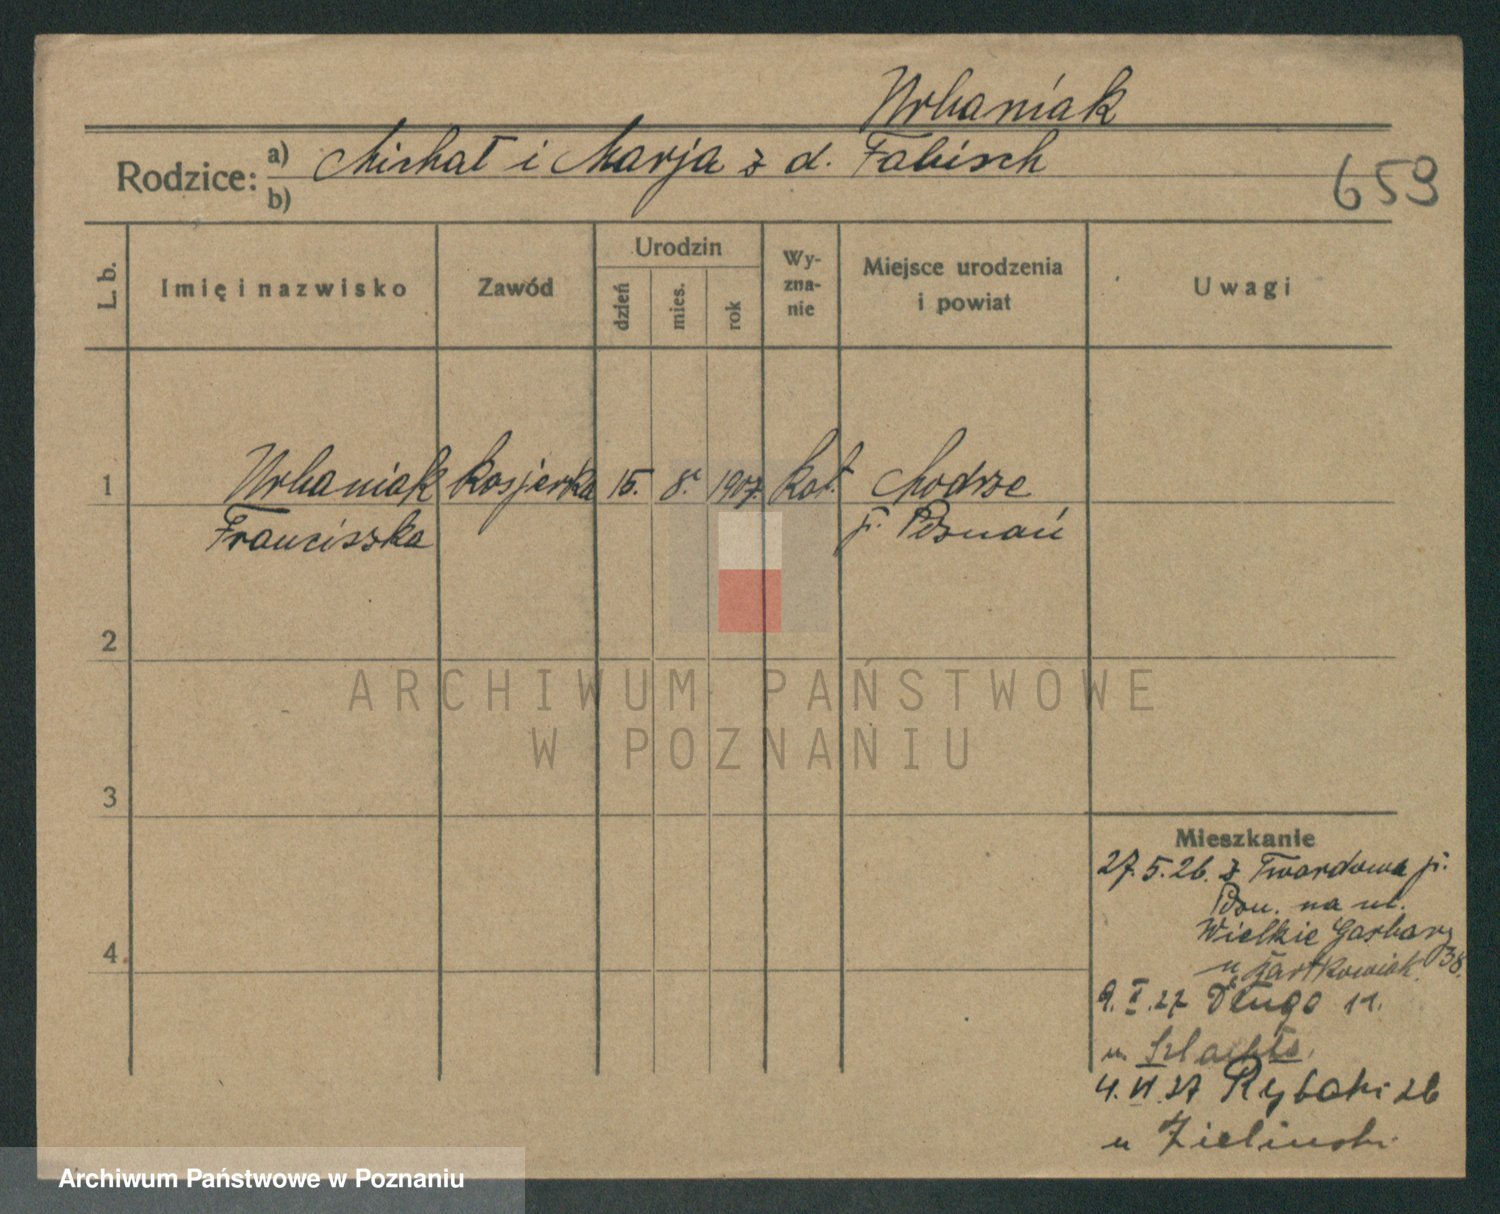 Urbaniak
Rodzice: a) Michał i Marja z d. Fabisch
b)
659
L. b.
Imię i nazwisko
Zawód
Urodzin
dzień
mies.
rok
Wy-
zna-
nie
Miejsce urodzenia
i powiat
Uwagi
1 Urbaniak kasjerka 15. 8. 1907. kat. Modrze
Franciszka p. Poznań
2
3
4.
ARCHIWUM PAŃSTWOWE
W POZNANIU
Mieszkanie
27.5.26. z Twardowa p.
Pozn. na ul.
Wielkie Garbary
38.
u Bartkowiak
9. I. 27 Długa 11.
u Szlachta.
4. VI. 27 Rybaki 26
u Zielinski
Archiwum Państwowe w Poznaniu